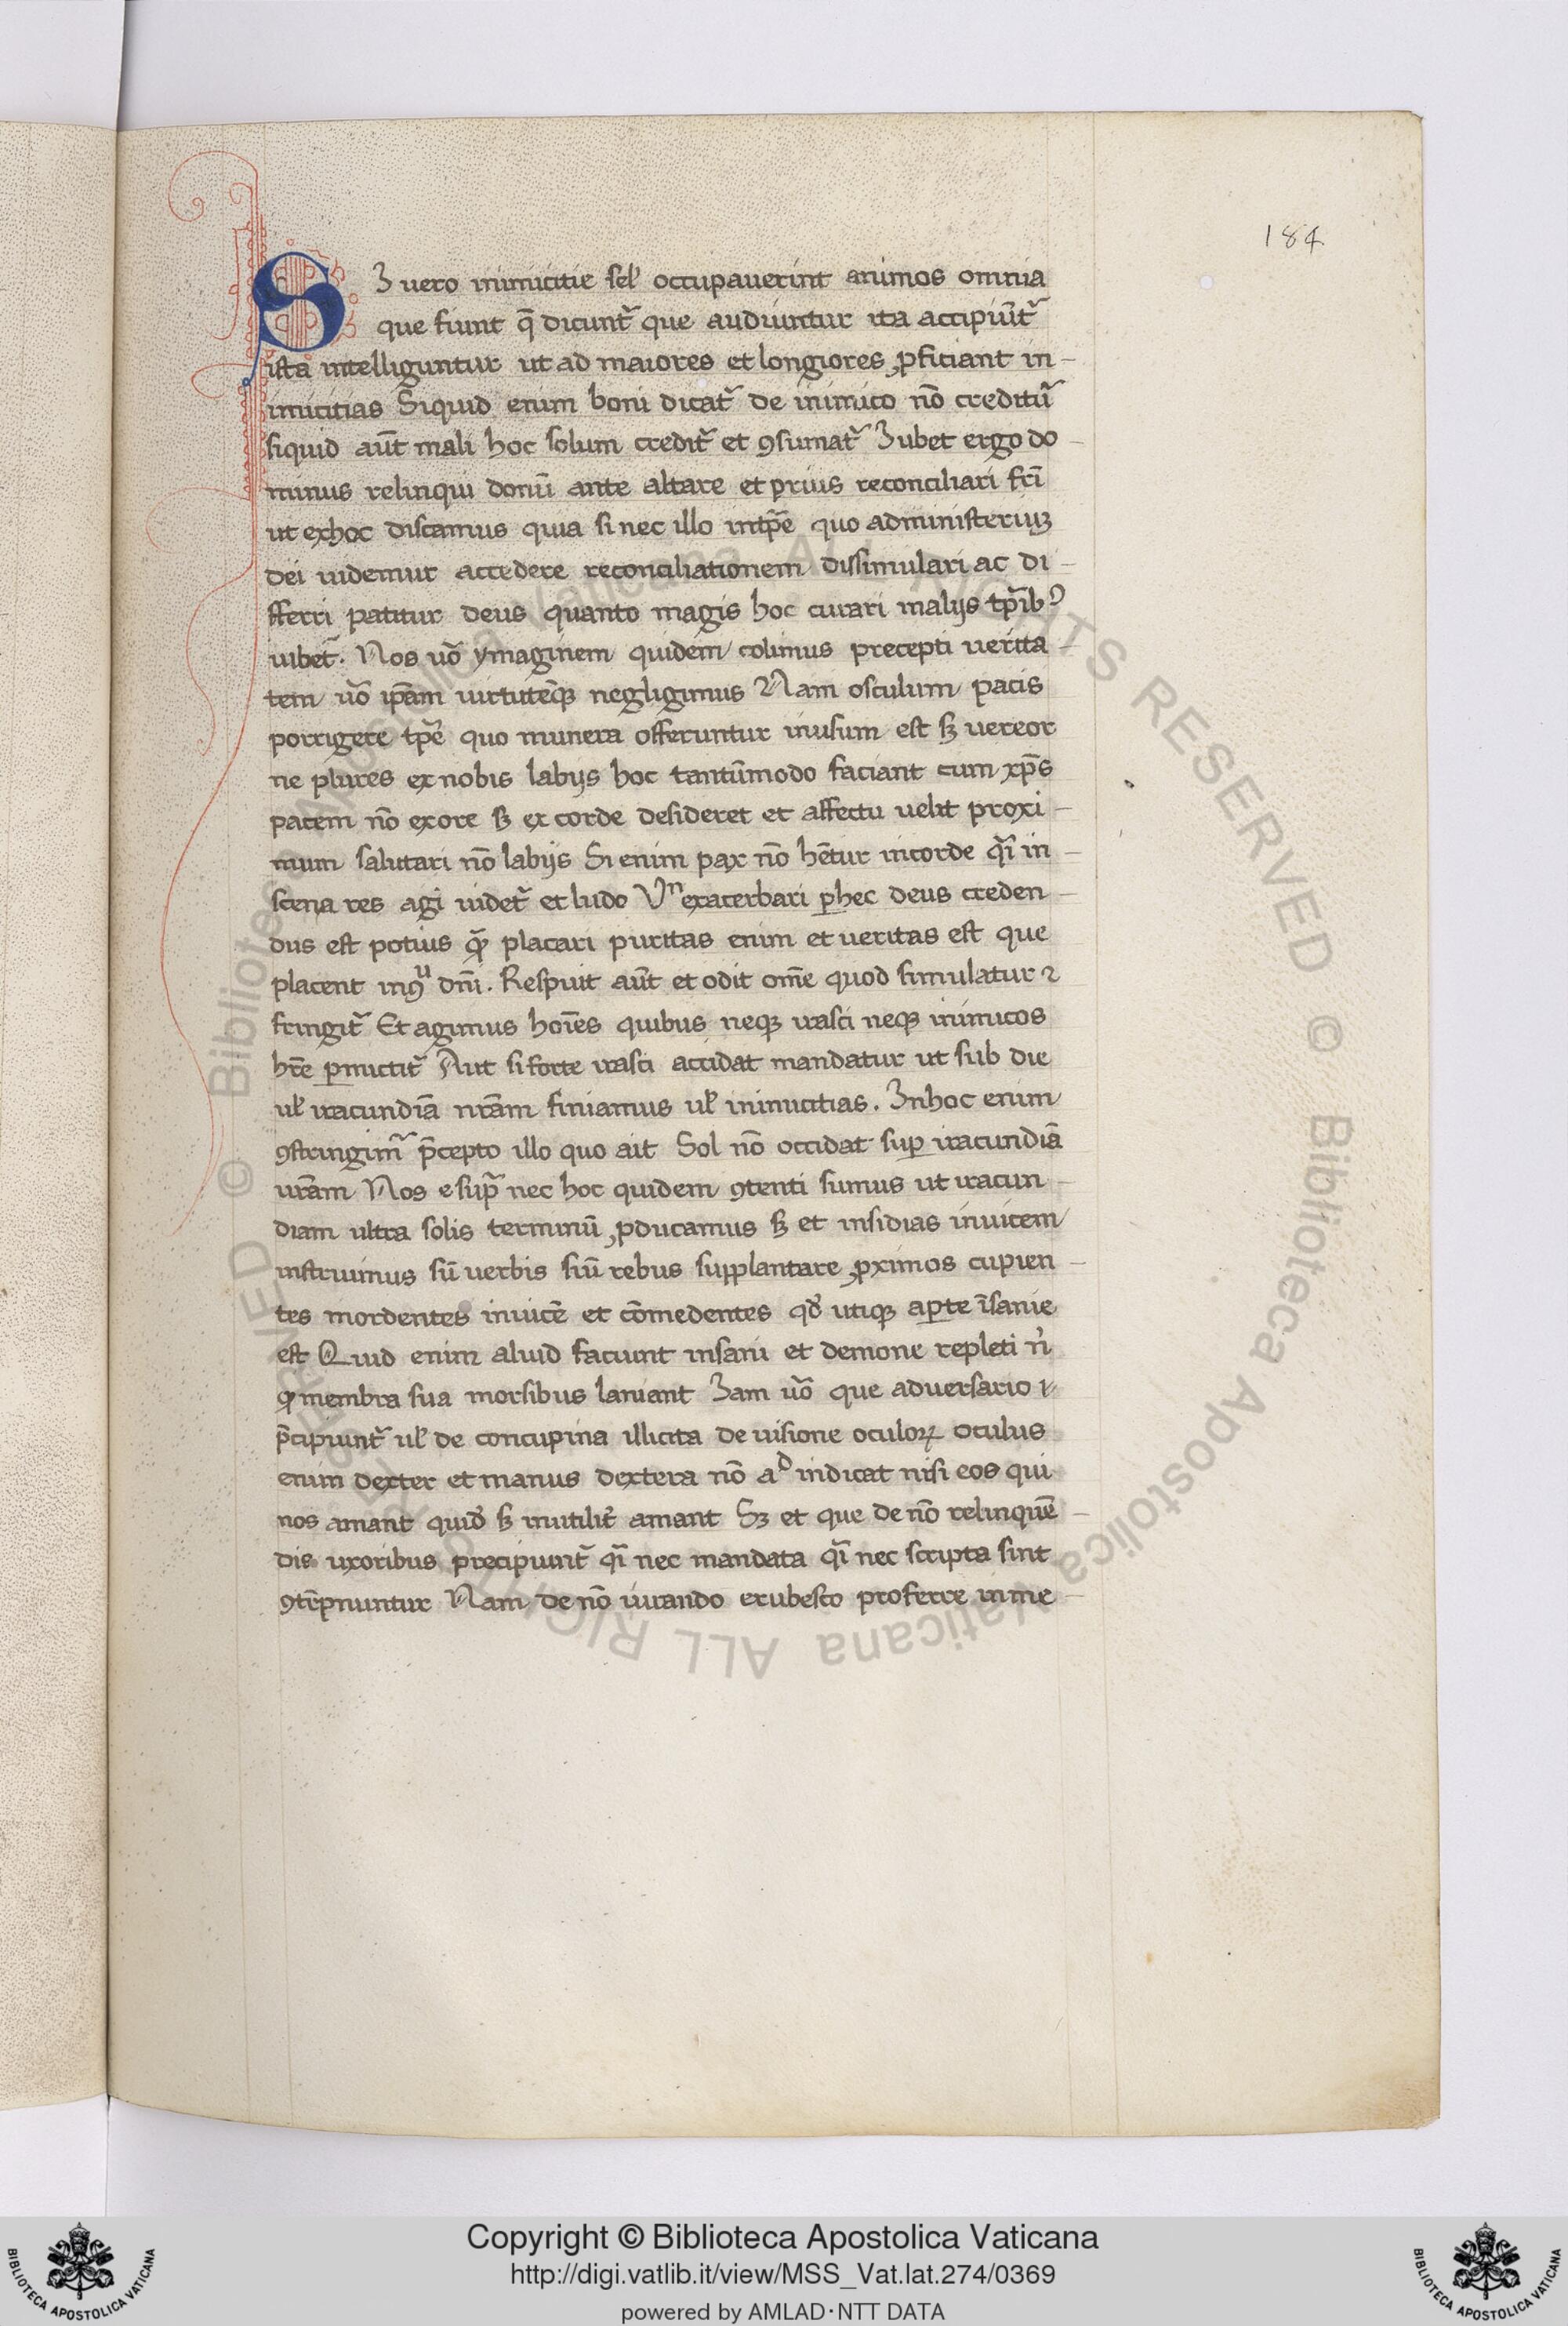 184
SI uero inimicitie sel̓ occupauerint animos omnia
que fiunt q̄ dicunt᷑ que audiuntur ita accipiūt᷑
ista intelliguntur ut ad maiores et longiores ꝓficiant in-
imicitias Siquid enim boni dicat᷑ de inimico nō creditu᷑
siquid aūt mali hoc solum credit᷑ et ꝯsumat᷑ Iubet ergo do-
minus relinqui donū ante altare et prius reconciliari fr̄i
ut exhoc discamus quia si nec illo intp̄e quo administeriuꝫ
dei uidemur accedere reconciliationem dissimulari ac di-
fferri patitur deus quanto magis hoc curari malijs tp̄ibꝰ
uibet᷑. Nos uō ymaginem quidem colimus precepti uerita-
tem uō ip̄am uirtutēqꝫ negligimus Nam osculum pacis
porrigere tp̄e quo munera offeruntur inusum est sꝫ uereor
ne plures ex nobis labijs hoc tantūmodo faciant cum xp̄s
pacem nō exore sꝫ ex corde desideret et affectu uelit proxi-
mum salutari nō labijs Si enim pax nō hētur incorde qᷓi in-
scena res agi uidet᷑ et ludo Vⁿ exacerbari ꝑhec deus creden-
dus est potius qᷓꝫ placari puritas enim et ueritas est que
placent inꝯᵘ dn̄i. Respuit aūt et odit om̄e quod simulatur ⁊
fringit᷑ Et agimus hoīes quibus neqꝫ irasci neqꝫ inimicos
hr̄e ꝑmictit᷑ Aut si forte irasci accidat mandatur ut sub die
ul̓ iracundiā nr̄am finiamus ul̓ inimicitias. Inhoc enim
ꝯstringim᷑ p̄cepto illo quo ait Sol nō occidat suꝑ iracundiā
ur̄am Nos e supᷓ nec hoc quidem ꝯtenti sumus ut iracun-
diam ultra solis terminū ꝓducamus sꝫ et insidias inuicem
instruimus sū uerbis siū rebus supplantare ꝓximos cupien-
tes mordentes inuicē et cōmedentes qd̓ utiqꝫ aꝑte īsanie
est Quid enim aliud faciunt insani et demone repleti n̓
qꝫ membra sua morsibus laniant Iam uō que aduersario ⁊
p̄cipiunt᷑ ul̓ de concupina illicita de uisione oculoꝝ oculus
enim dexter et manus dextera nō aᵈ indicat nisi eos qui
nos amant quid̓ sꝫ inutilit̓ amant Sꝫ et que de nō relinquē-
dis uxoribus precipiunt᷑ qᷓi nec mandata qᷓi nec scripta sint
ꝯtēpnuntur Nam de nō iurando erubesco proferre in me-
Copyright © Biblioteca Apostolica Vaticana
http://digi.vatlib.it/view/MSS_Vat.lat.274/0369
powered by AMLAD·NTT DATA
BIBLIOTECA APOSTOLICA VATICANA
BIBLIOTECA APOSTOLICA VATICANA
© Biblioteca Apostolica Vaticana ALL RIGHTS RESERVED © Biblioteca Apostolica Vaticana ALL RIGHTS RESERVED